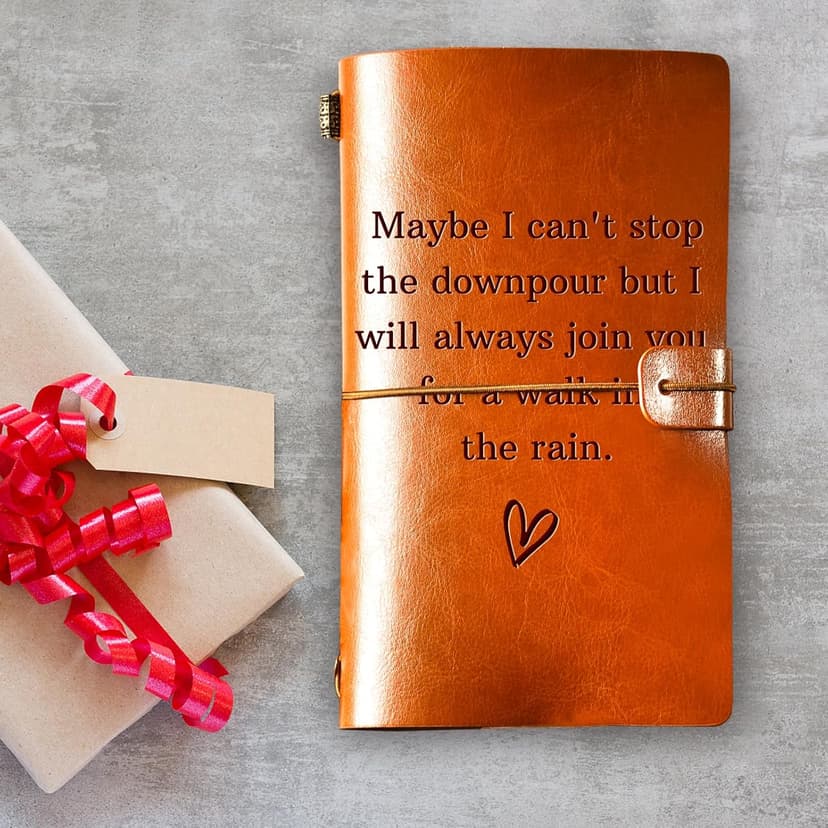 Maybe I can't stop
the downpour but I
will always join you
for a walk in
the rain.